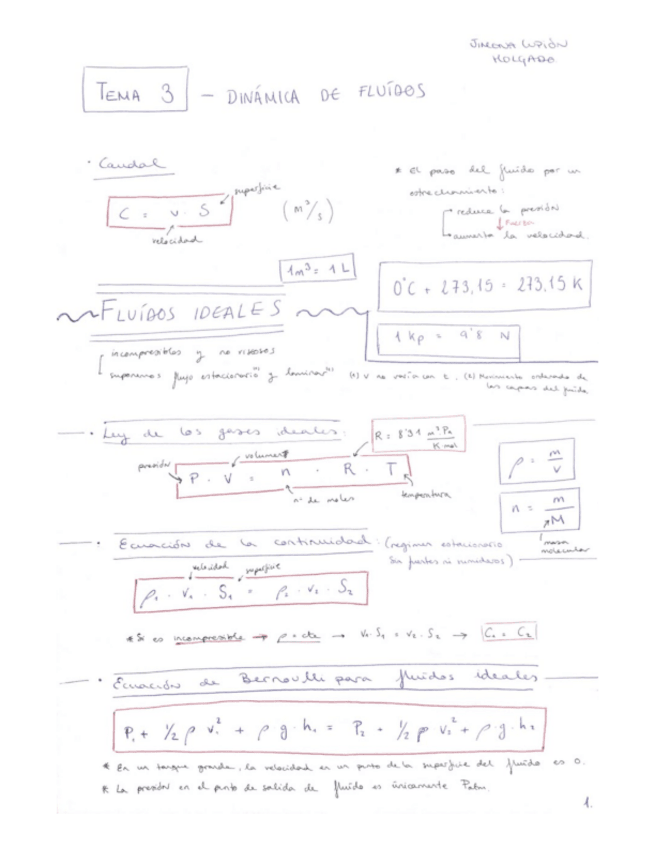 JIMENA LUPIÓN
HOLGADO
TEMA 3 – DINÁMICA DE FLUÍDOS
· Caudal
superficie
C = v · S (m³/s)
velocidad
* El paso del fluido por un
estrechamiento:
reduce la presión
Fuerza
aumenta la velocidad.
1 m³ = 1 L
0°C + 273,15 = 273,15 K
FLUÍDOS IDEALES
1 kp = 9'8 N
incompresibles y no viscosos
suponemos flujo estacionario⁽¹⁾ y laminar⁽²⁾ (1) v no varía con t, (2) Movimiento ordenado de
las capas del fluido
· Ley de los gases ideales:
R = 8'31 m³ Pa / K mol
presión volumen
P · V = n · R · T
nº de moles temperatura
ρ = m/V
n = m/M
masa
molecular
· Ecuación de la continuidad: (regimen estacionario
sin fuentes ni sumideros)
velocidad superficie
ρ₁ · v₁ · S₁ = ρ₂ · v₂ · S₂
* Si es incompresible → ρ = cte → v₁ · S₁ = v₂ · S₂ → C₁ = C₂
· Ecuación de Bernoulli para fluidos ideales
P₁ + ½ ρ v₁² + ρ g · h₁ = P₂ + ½ ρ v₂² + ρ · g · h₂
* En un tanque grande, la velocidad en un punto de la superficie del fluido es 0.
* La presión en el punto de salida de fluido es únicamente Patm.
1.